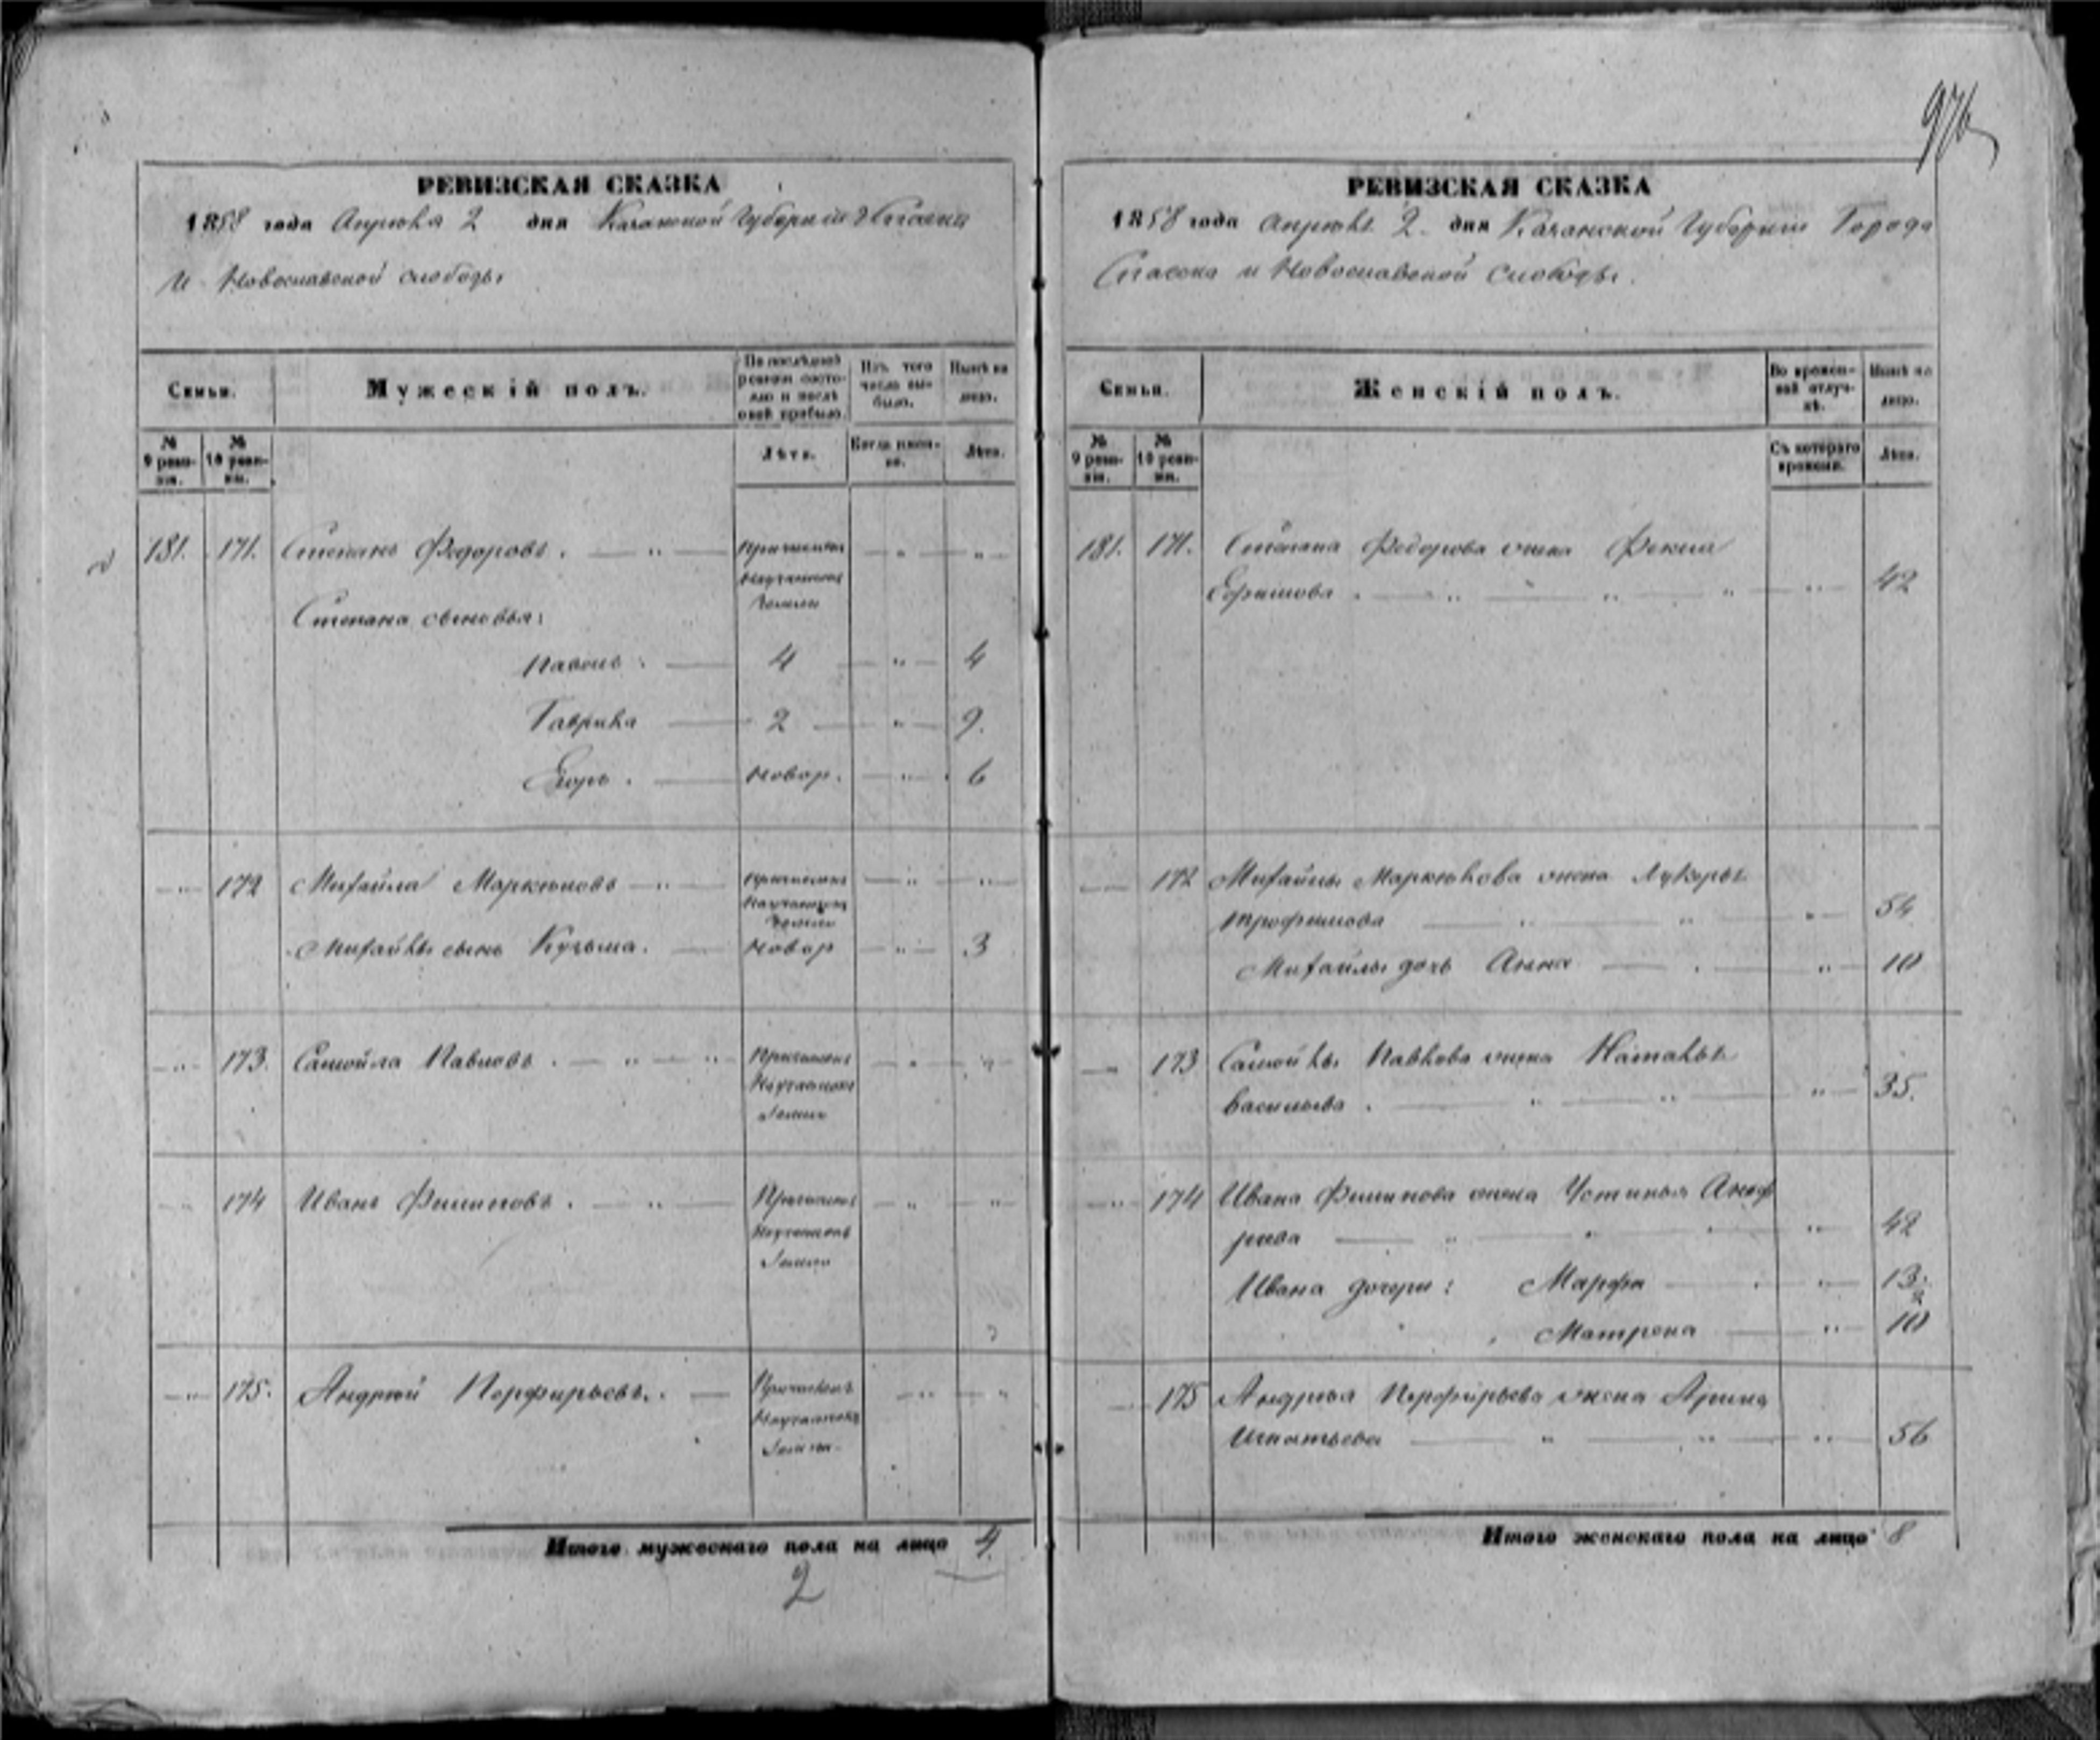 976
РЕВИЗСКАЯ СКАЗКА
1858 года Апрѣля 2 дня Казанской Губерніи
и Новоспасской слободы
Семьи.
Мужескій полъ.
По послѣдней ревизіи состояло и послѣ оной прибыло.
Изъ того числа выбыло.
Нынѣ на лицо.
№ 9 ревизіи.
№ 10 ревизіи.
Лѣта.
Когда именно.
Лѣта.
181. 171. Степанъ Федоровъ. — " —
Степана сыновья:
Павелъ. — 4 — " — 4
Гаврила — 2 — " — 9.
Егоръ. — новор. — " — 6
— " — 172 Михайла Маркеловъ — " —
Михайлы сынъ Кузьма. — новор — " — 3
— " — 173. Самойла Павловъ. — " — "
174 Иванъ Филиповъ. — " —
— " — 175. Андрей Порфирьевъ. —
Итого мужескаго пола на лицо 4.
2
РЕВИЗСКАЯ СКАЗКА
1858 года Апрѣля 2. дня Казанской Губерніи Города
Спасска и Новоспасской слободы.
Семьи.
Женскій полъ.
Во временной отлучкѣ.
Нынѣ на лицо.
№ 9 ревизіи.
№ 10 ревизіи.
Съ котораго времени.
Лѣта.
181. 171. Степана Федорова жена Фекла
Ефимова. — " — " — " — " — 42
— 172 Михайлы Маркелова жена Лукерья
Трофимова — " — " — " — 54
Михайлы дочь Анна — " — 10
— 173 Самойлы Павлова жена Наталья
Васильева. — " — " — " — 35.
— " — 174 Ивана Филипова жена Устинья
— " — " — " — 42
Ивана дочери: Марфа — " — 13.
Матрена — " — 10
— 175 Андрея Порфирьева жена Арина
Игнатьева — " — " — " — 56
Итого женскаго пола на лицо 8